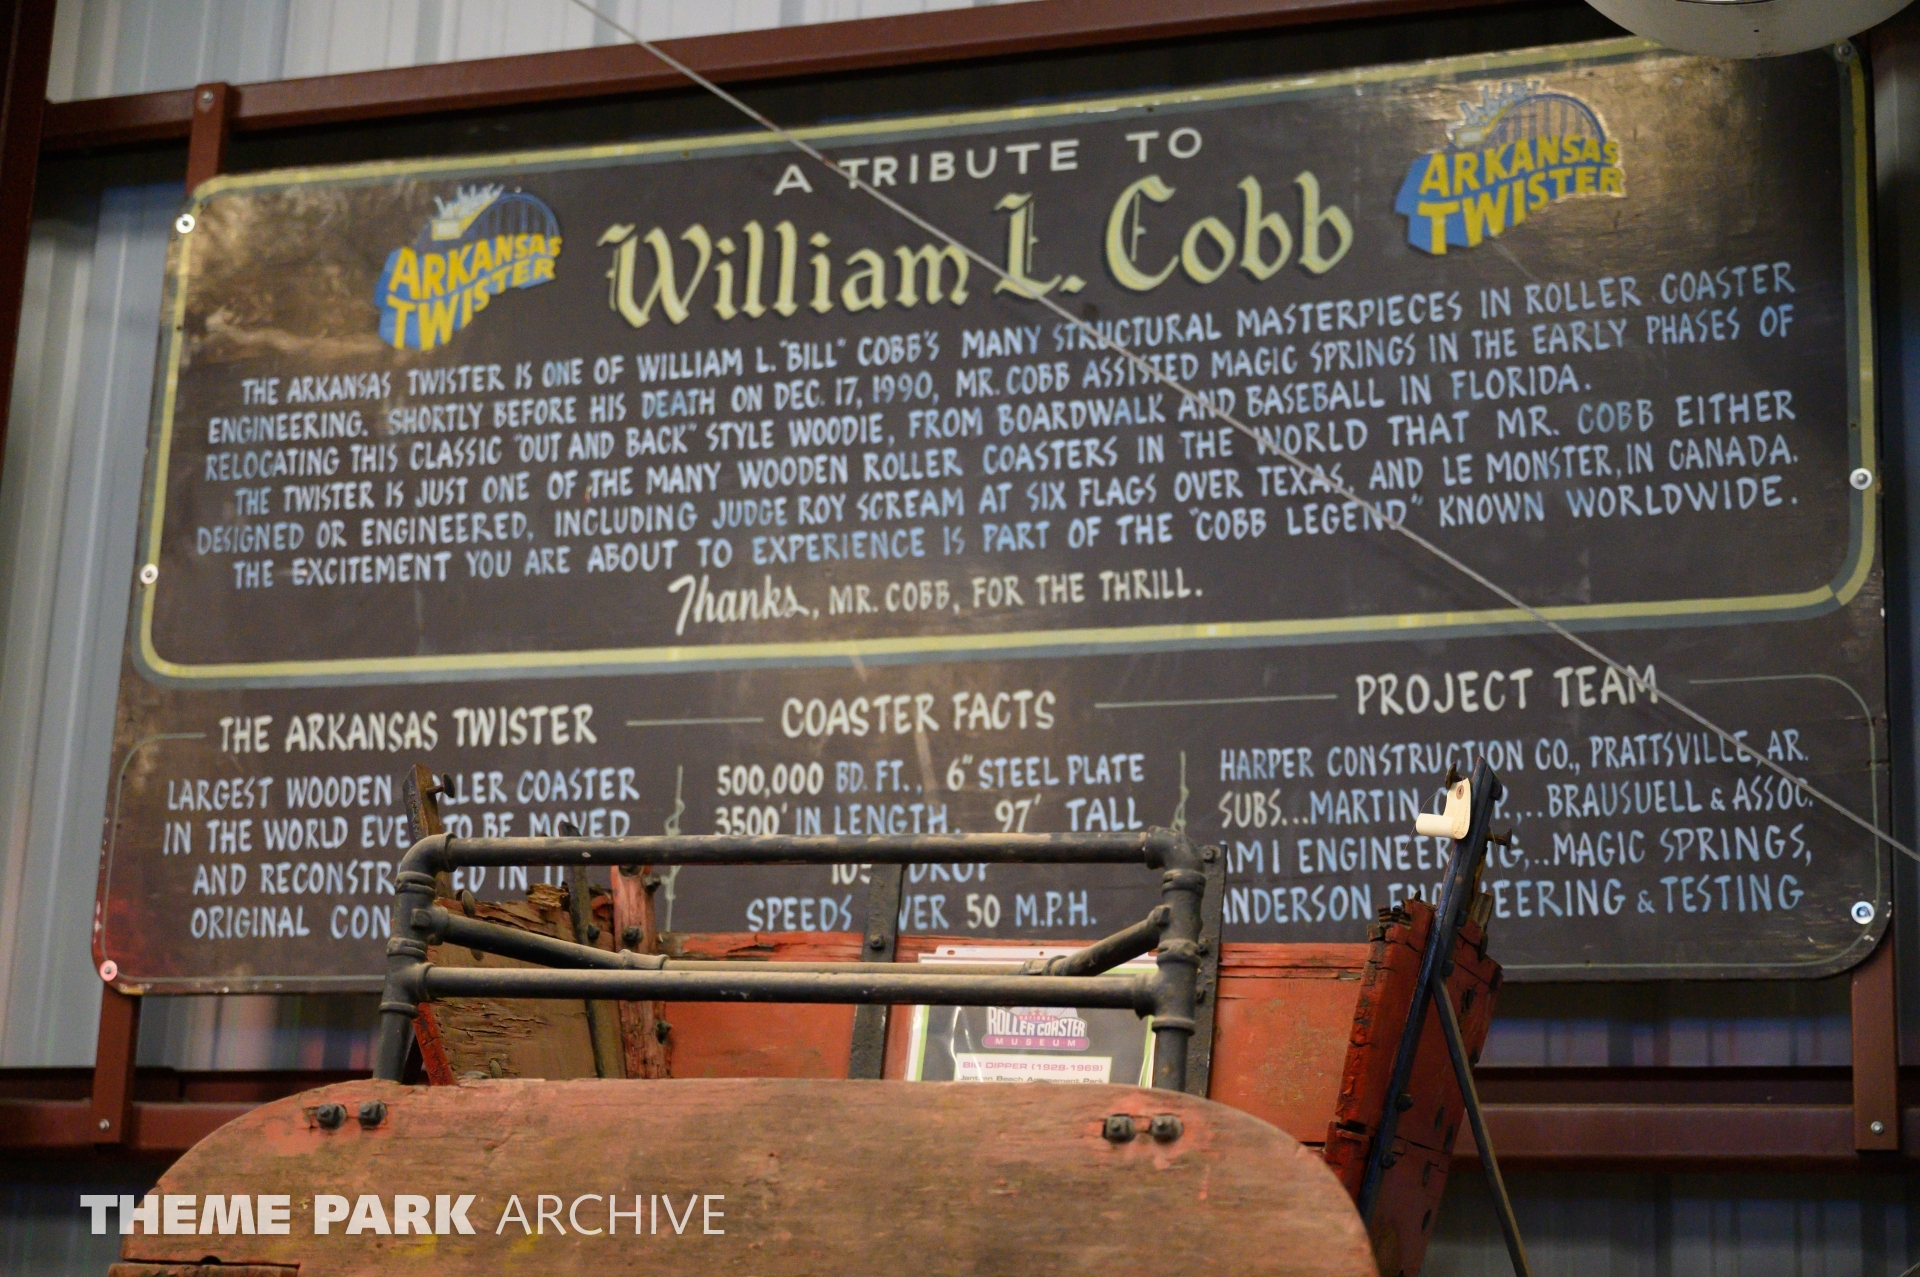 A TRIBUTE TO
William L. Cobb
ARKANSAS
TWISTER
ARKANSAS
TWISTER
THE ARKANSAS TWISTER IS ONE OF WILLIAM L. "BILL" COBB'S MANY STRUCTURAL MASTERPIECES IN ROLLER COASTER
ENGINEERING. SHORTLY BEFORE HIS DEATH ON DEC. 17, 1990, MR. COBB ASSISTED MAGIC SPRINGS IN THE EARLY PHASES OF
RELOCATING THIS CLASSIC "OUT AND BACK" STYLE WOODIE, FROM BOARDWALK AND BASEBALL IN FLORIDA.
THE TWISTER IS JUST ONE OF THE MANY WOODEN ROLLER COASTERS IN THE WORLD THAT MR. COBB EITHER
DESIGNED OR ENGINEERED, INCLUDING JUDGE ROY SCREAM AT SIX FLAGS OVER TEXAS, AND LE MONSTER, IN CANADA.
THE EXCITEMENT YOU ARE ABOUT TO EXPERIENCE IS PART OF THE "COBB LEGEND" KNOWN WORLDWIDE.
Thanks, MR. COBB, FOR THE THRILL.
THE ARKANSAS TWISTER
LARGEST WOODEN LLER COASTER
IN THE WORLD EVE TO BE MOVED
AND RECONSTR ED IN
ORIGINAL CON
COASTER FACTS
500,000 BD. FT., 6" STEEL PLATE
3500' IN LENGTH, 97' TALL
105 DROP
SPEEDS VER 50 M.P.H.
PROJECT TEAM
HARPER CONSTRUCTION CO., PRATTSVILLE, AR.
SUBS...MARTIN P.,...BRAUSUELL & ASSOC.
AMI ENGINEERING,..MAGIC SPRINGS,
ANDERSON ENGINEERING & TESTING
NATIONAL
ROLLER COASTER
MUSEUM
BIG DIPPER (1928-1969)
Jantzen Beach Amusement Park
THEME PARK ARCHIVE